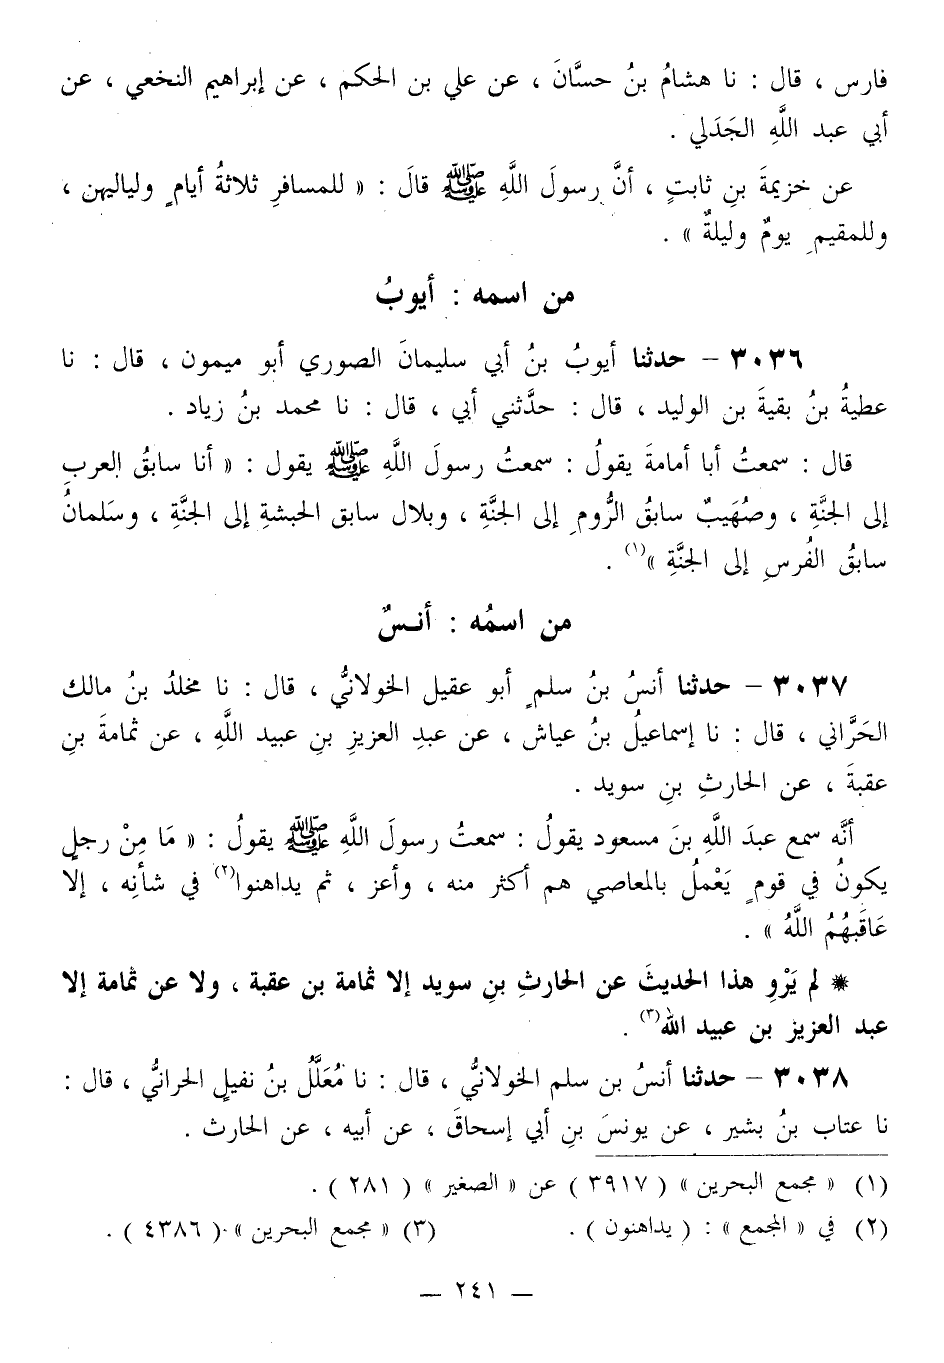 فارس ، قال : نا هشامُ بنُ حسَّانَ ، عن علي بن الحكم ، عن إبراهيم النخعي ، عن
أبي عبد اللَّهِ الجَدَلي .
عن خزيمةَ بنِ ثابتٍ ، أنَّ رسولَ اللَّهِ ﷺ قالَ : « للمسافرِ ثلاثةُ أيامٍ ولياليهن ،
وللمقيمِ يومٌ وليلةٌ » .
من اسمه : أيوبُ
٣٠٣٦ – حدثنا أيوبُ بنُ أبي سليمانَ الصوري أبو ميمون ، قال : نا
عطيةُ بنُ بقيةَ بن الوليد ، قال : حدَّثني أبي ، قال : نا محمد بنُ زياد .
قال : سمعتُ أبا أمامةَ يقولُ : سمعتُ رسولَ اللَّهِ ﷺ يقول : « أنا سابقُ العربِ
إلى الجنَّةِ ، وصُهَيبٌ سابقُ الرُّومِ إلى الجنَّةِ ، وبلال سابق الحبشةِ إلى الجنَّةِ ، وسَلمانُ
سابقُ الفُرسِ إلى الجنَّةِ »(١) .
من اسمُه : أنسٌ
٣٠٣٧ – حدثنا أنسُ بنُ سلمٍ أبو عقيل الخولانيُّ ، قال : نا مخلدُ بنُ مالك
الحَرَّاني ، قال : نا إسماعيلُ بنُ عياش ، عن عبدِ العزيزِ بنِ عبيد اللَّهِ ، عن ثمامةَ بنِ
عقبةَ ، عن الحارثِ بنِ سويد .
أنَّه سمع عبدَ اللَّهِ بنَ مسعود يقولُ : سمعتُ رسولَ اللَّهِ ﷺ يقولُ : « مَا مِنْ رجلٍ
يكونُ في قومٍ يَعْملُ بالمعاصي هم أكثر منه ، وأعز ، ثم يداهنوا(٢) في شأنِه ، إلا
عَاقَبهُمُ اللَّهُ » .
* لم يَرْوِ هذا الحديثَ عن الحارثِ بنِ سويد إلا ثمامة بن عقبة ، ولا عن ثمامة إلا
عبد العزيز بن عبيد الله(٣) .
٣٠٣٨ – حدثنا أنسُ بن سلم الخولانيُّ ، قال : نا مُعَلَّلُ بنُ نفيلٍ الحرانيُّ ، قال :
نا عتاب بنُ بشير ، عن يونسَ بنِ أبي إسحاقَ ، عن أبيه ، عن الحارث .
(١) « مجمع البحرين » ( ٣٩١٧ ) عن « الصغير » ( ٢٨١ ) .
(٢) في « المجمع » : ( يداهنون ) . (٣) « مجمع البحرين » ( ٤٣٨٦ ) .
— ٢٤١ —